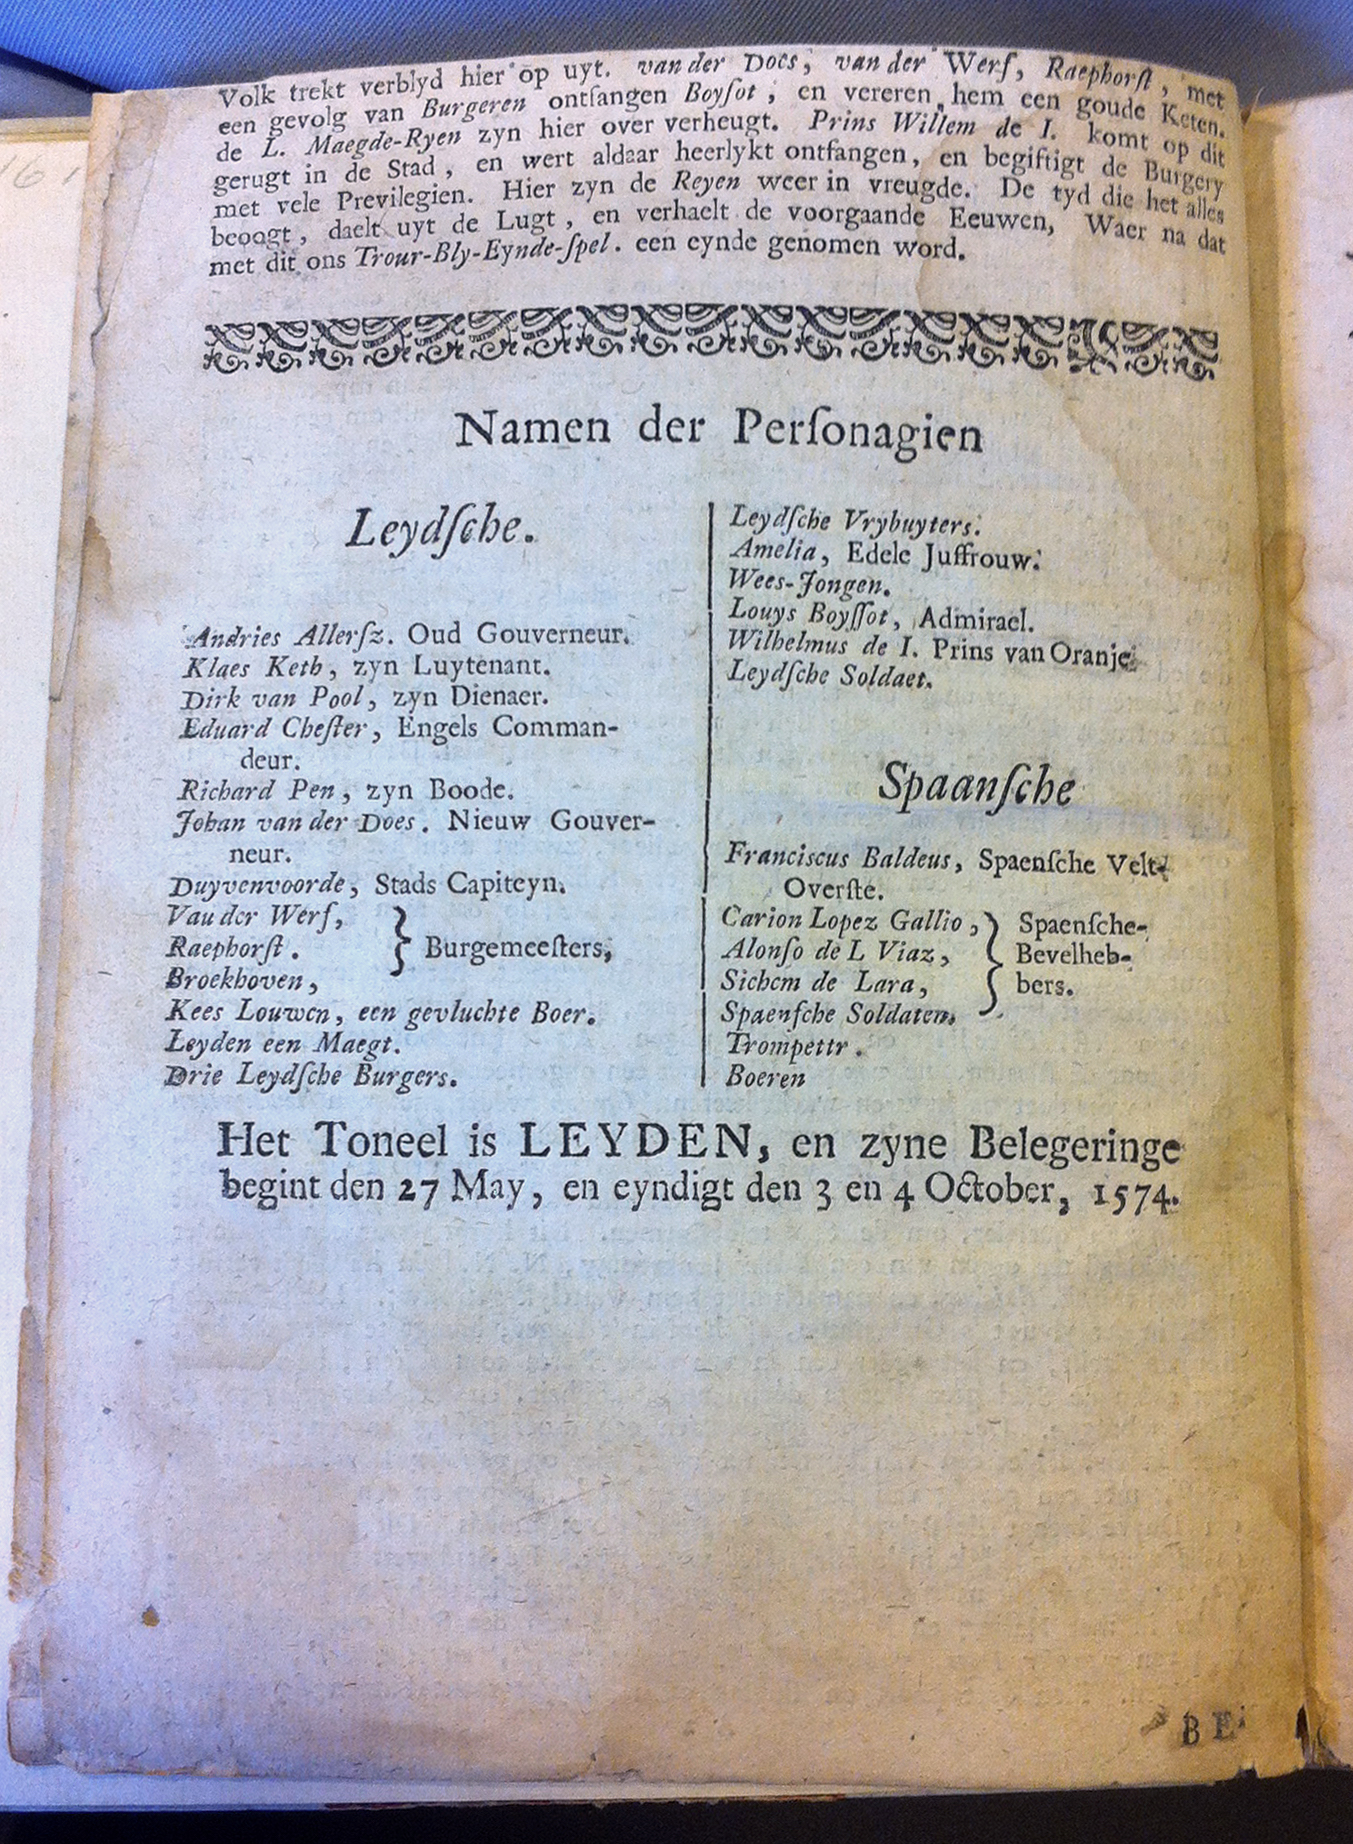 Volk trekt verblyd hier op uyt. van der Does, van der Werf, Raephorſt, met
een gevolg van Burgeren ontfangen Boyſot, en vereren hem een goude Keten.
de L. Maegde-Ryen zyn hier over verheugt. Prins Willem de I. komt op dit
gerugt in de Stad, en wert aldaar heerlykt ontfangen, en begiftigt de Burgery
met vele Previlegien. Hier zyn de Reyen weer in vreugde. De tyd die het alles
beoogt, daelt uyt de Lugt, en verhaelt de voorgaande Eeuwen, Waer na dat
met dit ons Trour-Bly-Eynde-ſpel. een eynde genomen word.
Namen der Perſonagien
Leydſche.
Andries Allerſz. Oud Gouverneur.
Klaes Keth, zyn Luytenant.
Dirk van Pool, zyn Dienaer.
Eduard Cheſter, Engels Comman-
deur.
Richard Pen, zyn Boode.
Johan van der Does. Nieuw Gouver-
neur.
Duyvenvoorde, Stads Capiteyn.
Vau der Werf,
Raephorſt. } Burgemeeſters,
Broekhoven,
Kees Louwen, een gevluchte Boer.
Leyden een Maegt.
Drie Leydſche Burgers.
Leydſche Vrybuyters.
Amelia, Edele Juffrouw.
Wees-Jongen.
Louys Boyſſot, Admirael.
Wilhelmus de I. Prins van Oranje
Leydſche Soldaet.
Spaanſche
Franciscus Baldeus, Spaenſche Velt-
Overſte.
Carion Lopez Gallio, } Spaenſche-
Alonſo de L Viaz, Bevelheb-
Sichem de Lara, bers.
Spaenſche Soldaten.
Trompettr.
Boeren
Het Toneel is LEYDEN, en zyne Belegeringe
begint den 27 May, en eyndigt den 3 en 4 October, 1574.
BE